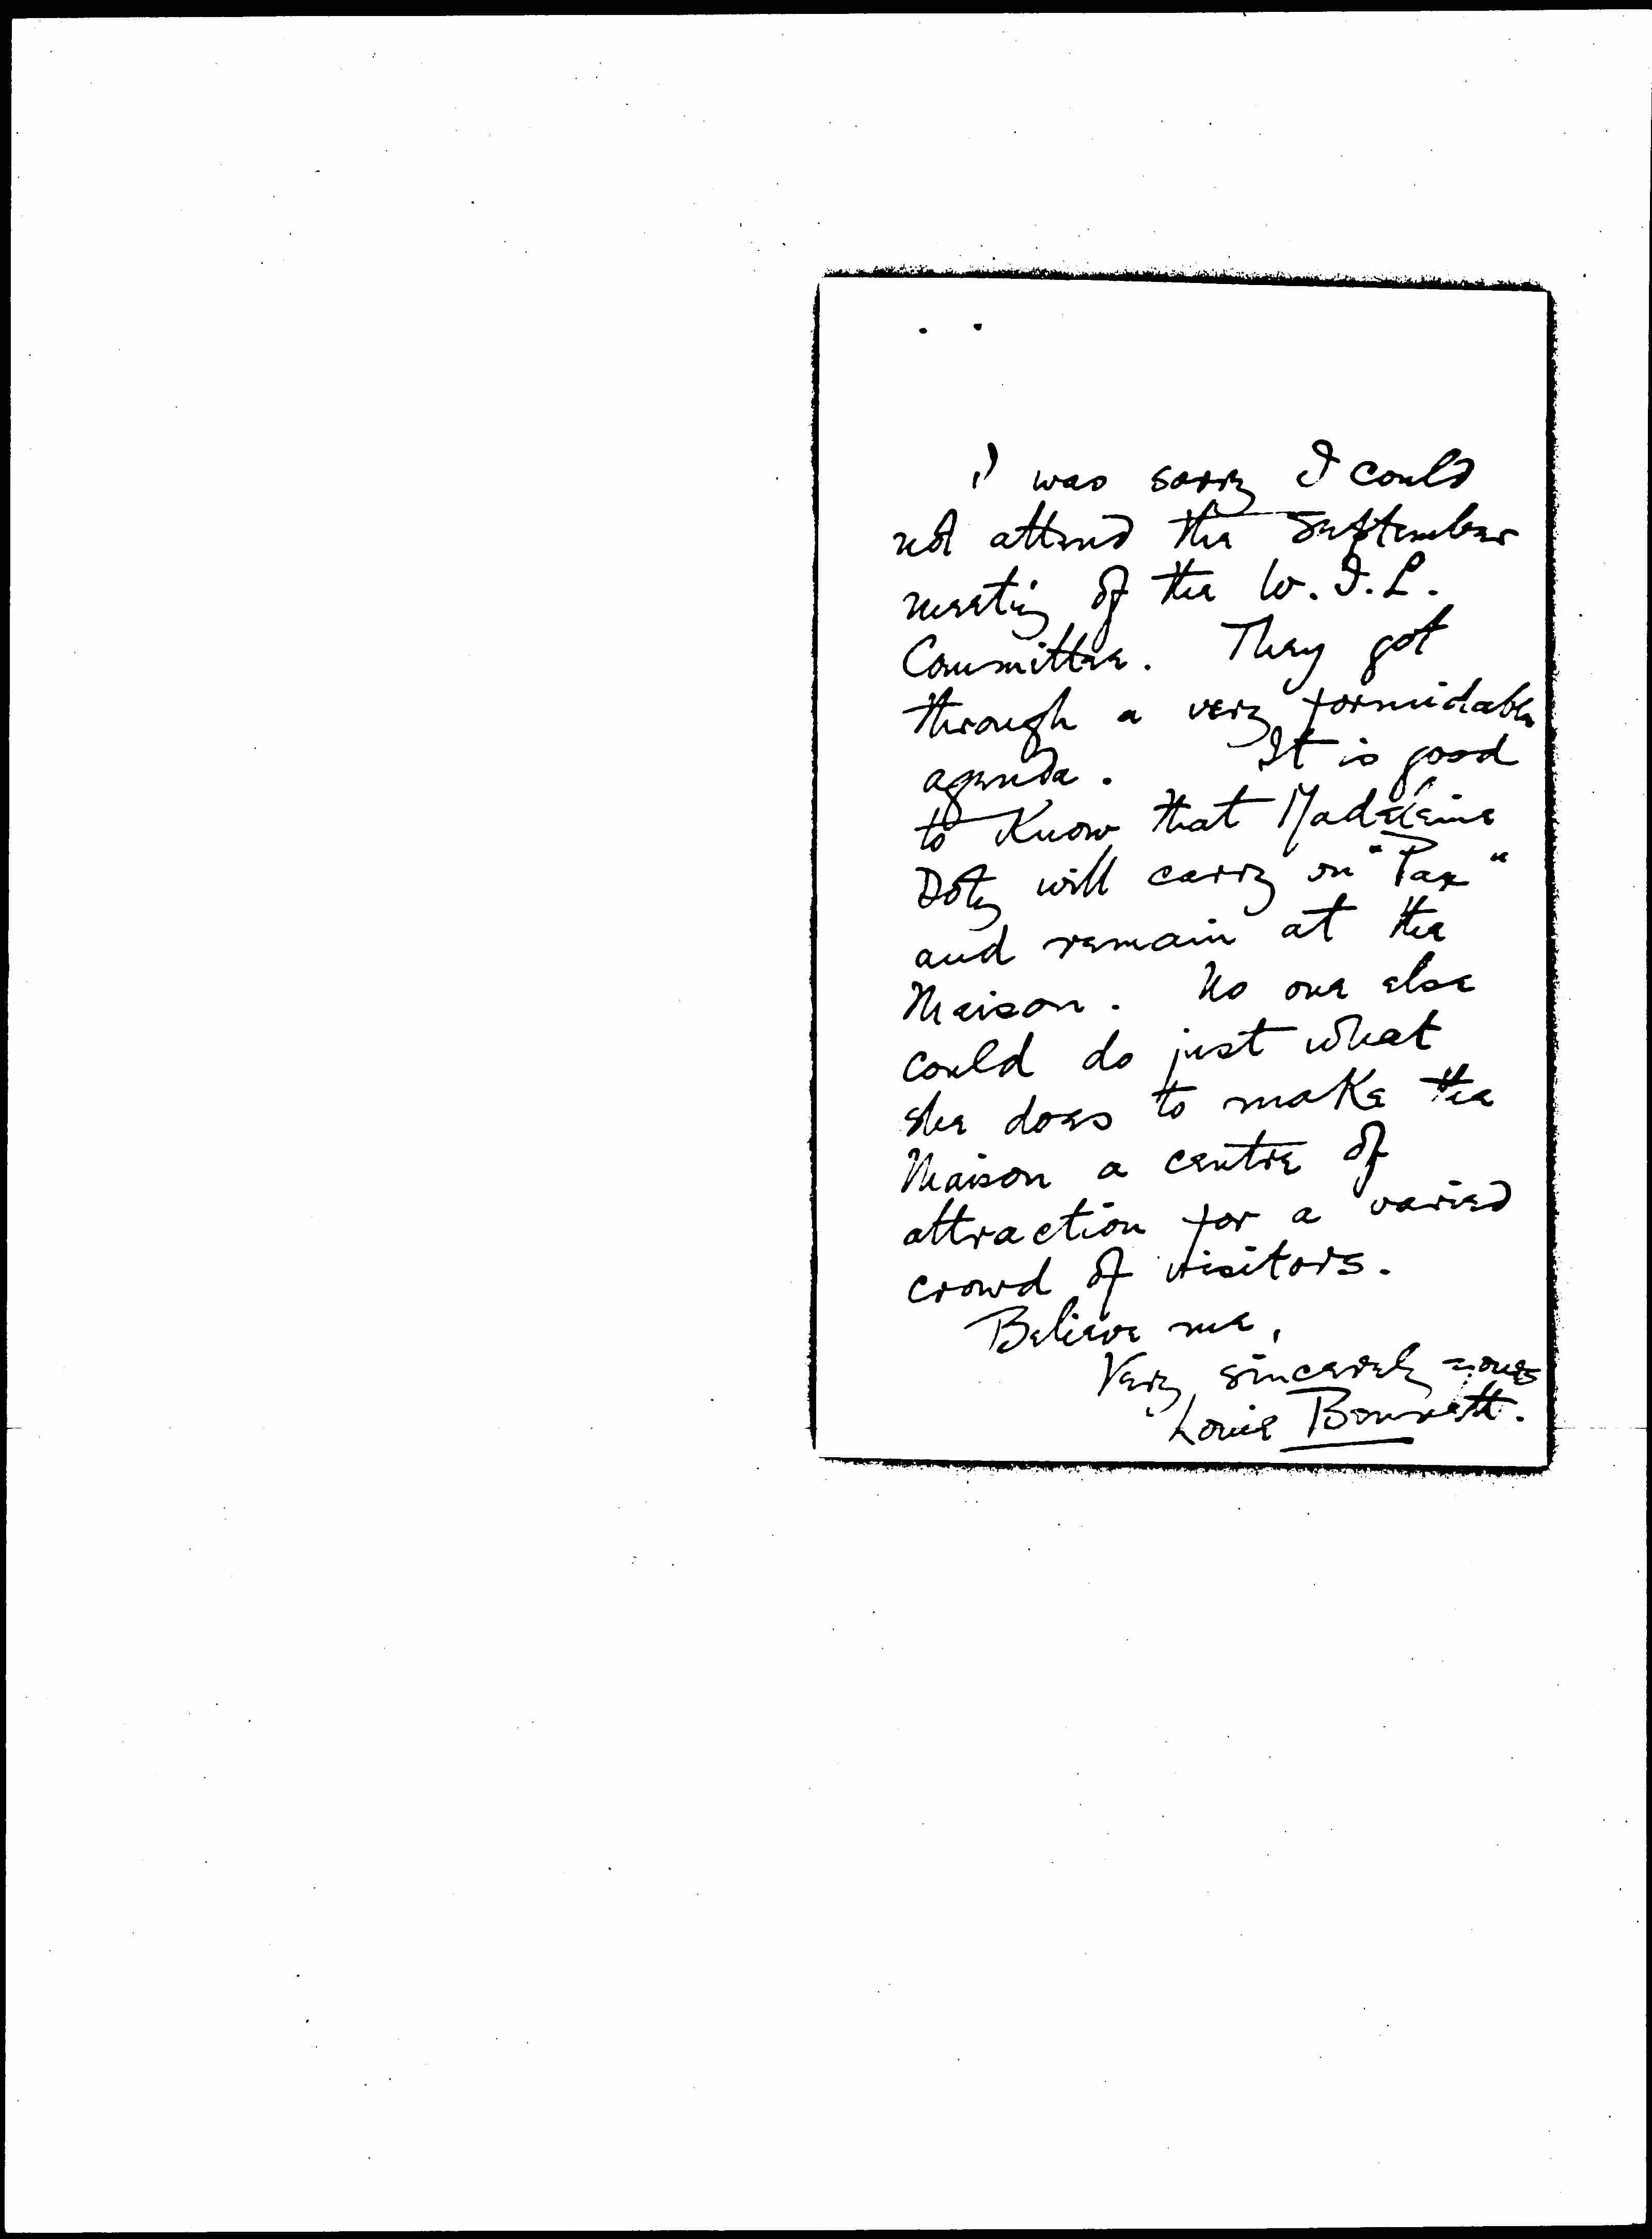 I was sorry I could
not attend the September
meeting of the W.I.L.
Committee. They got
through a very formidable
agenda. It is good
to know that Madeleine
Doty will carry on "Pax"
and remain at the
Maison. No one else
could do just what
she does to make the
Maison a centre of
attraction for a varied
crowd of visitors.
Believe me,
Very sincerely yours
Louie Bennett.